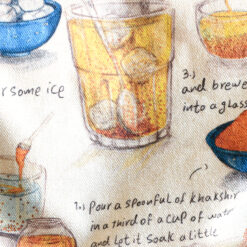 r some ice
3.)
and brewe
into a glass
1.) Pour a spoonful of khakshir
in a third of a cup of water
and let it soak a little